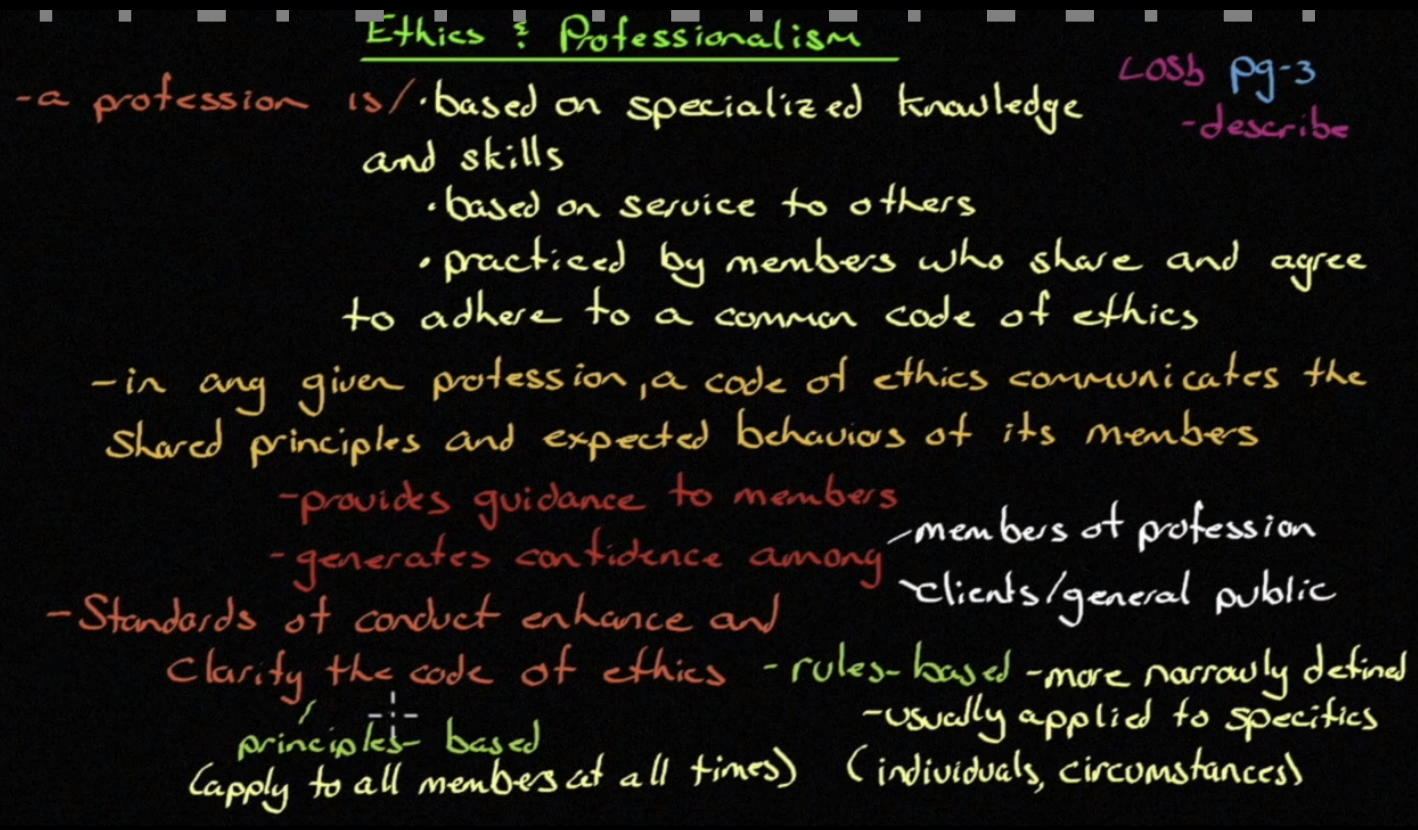 Ethics & Professionalism
LOSb pg-3
-describe
-a profession is/ ·based on specialized knowledge
and skills
·based on service to others
·practiced by members who share and agree
to adhere to a common code of ethics
-in any given profession, a code of ethics communicates the
shared principles and expected behaviors of its members
-provides guidance to members
-generates confidence among
members of profession
clients/general public
-Standards of conduct enhance and
clarify the code of ethics
principles-based
(apply to all members at all times)
-rules-based -more narrowly defined
-usually applied to specifics
(individuals, circumstances)